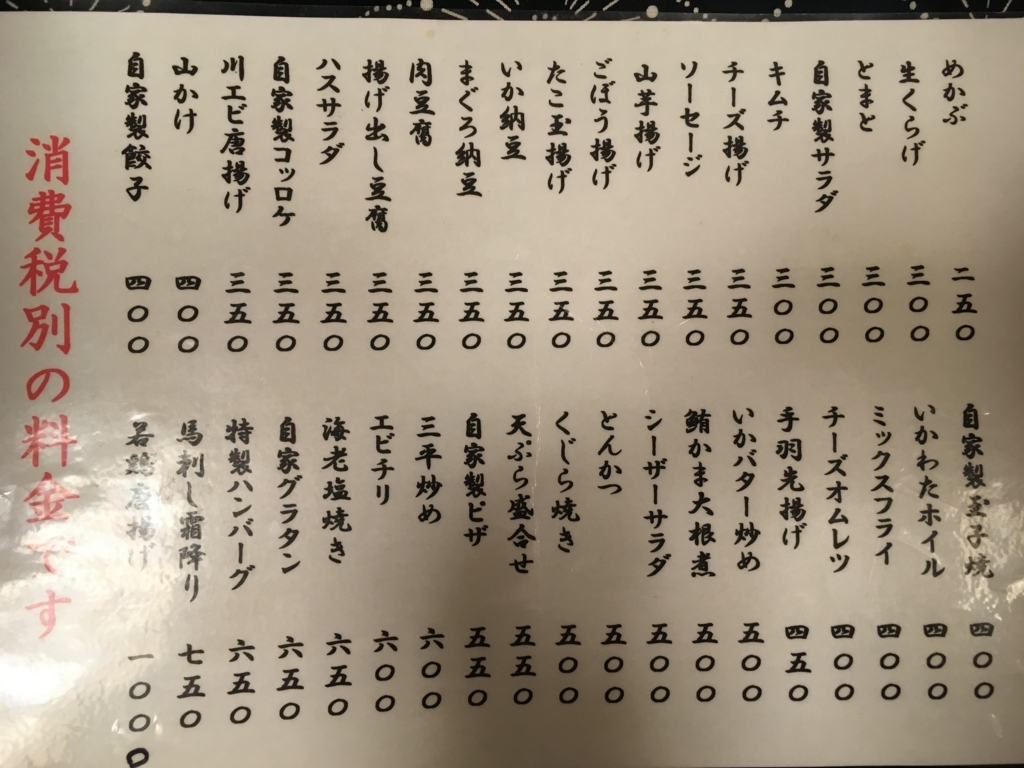 めかぶ 二五〇
生くらげ 三〇〇
とまと 三〇〇
自家製サラダ 三〇〇
キムチ 三〇〇
チーズ揚げ 三五〇
ソーセージ 三五〇
山芋揚げ 三五〇
ごぼう揚げ 三五〇
たこ玉揚げ 三五〇
いか納豆 三五〇
まぐろ納豆 三五〇
肉豆腐 三五〇
揚げ出し豆腐 三五〇
ハスサラダ 三五〇
自家製コッロケ 三五〇
川エビ唐揚げ 三五〇
山かけ 四〇〇
自家製餃子 四〇〇
自家製玉子焼 四〇〇
いかわたホイル 四〇〇
ミックスフライ 四〇〇
チーズオムレツ 四〇〇
手羽先揚げ 四五〇
いかバター炒め 五〇〇
鮪かま大根煮 五〇〇
シーザーサラダ 五〇〇
とんかつ 五〇〇
くじら焼き 五〇〇
天ぷら盛合せ 五五〇
自家製ピザ 五五〇
三平炒め 六〇〇
エビチリ 六〇〇
海老塩焼き 六五〇
自家グラタン 六五〇
特製ハンバーグ 六五〇
馬刺し霜降り 七五〇
若鶏唐揚げ 一〇〇〇
消費税別の料金です